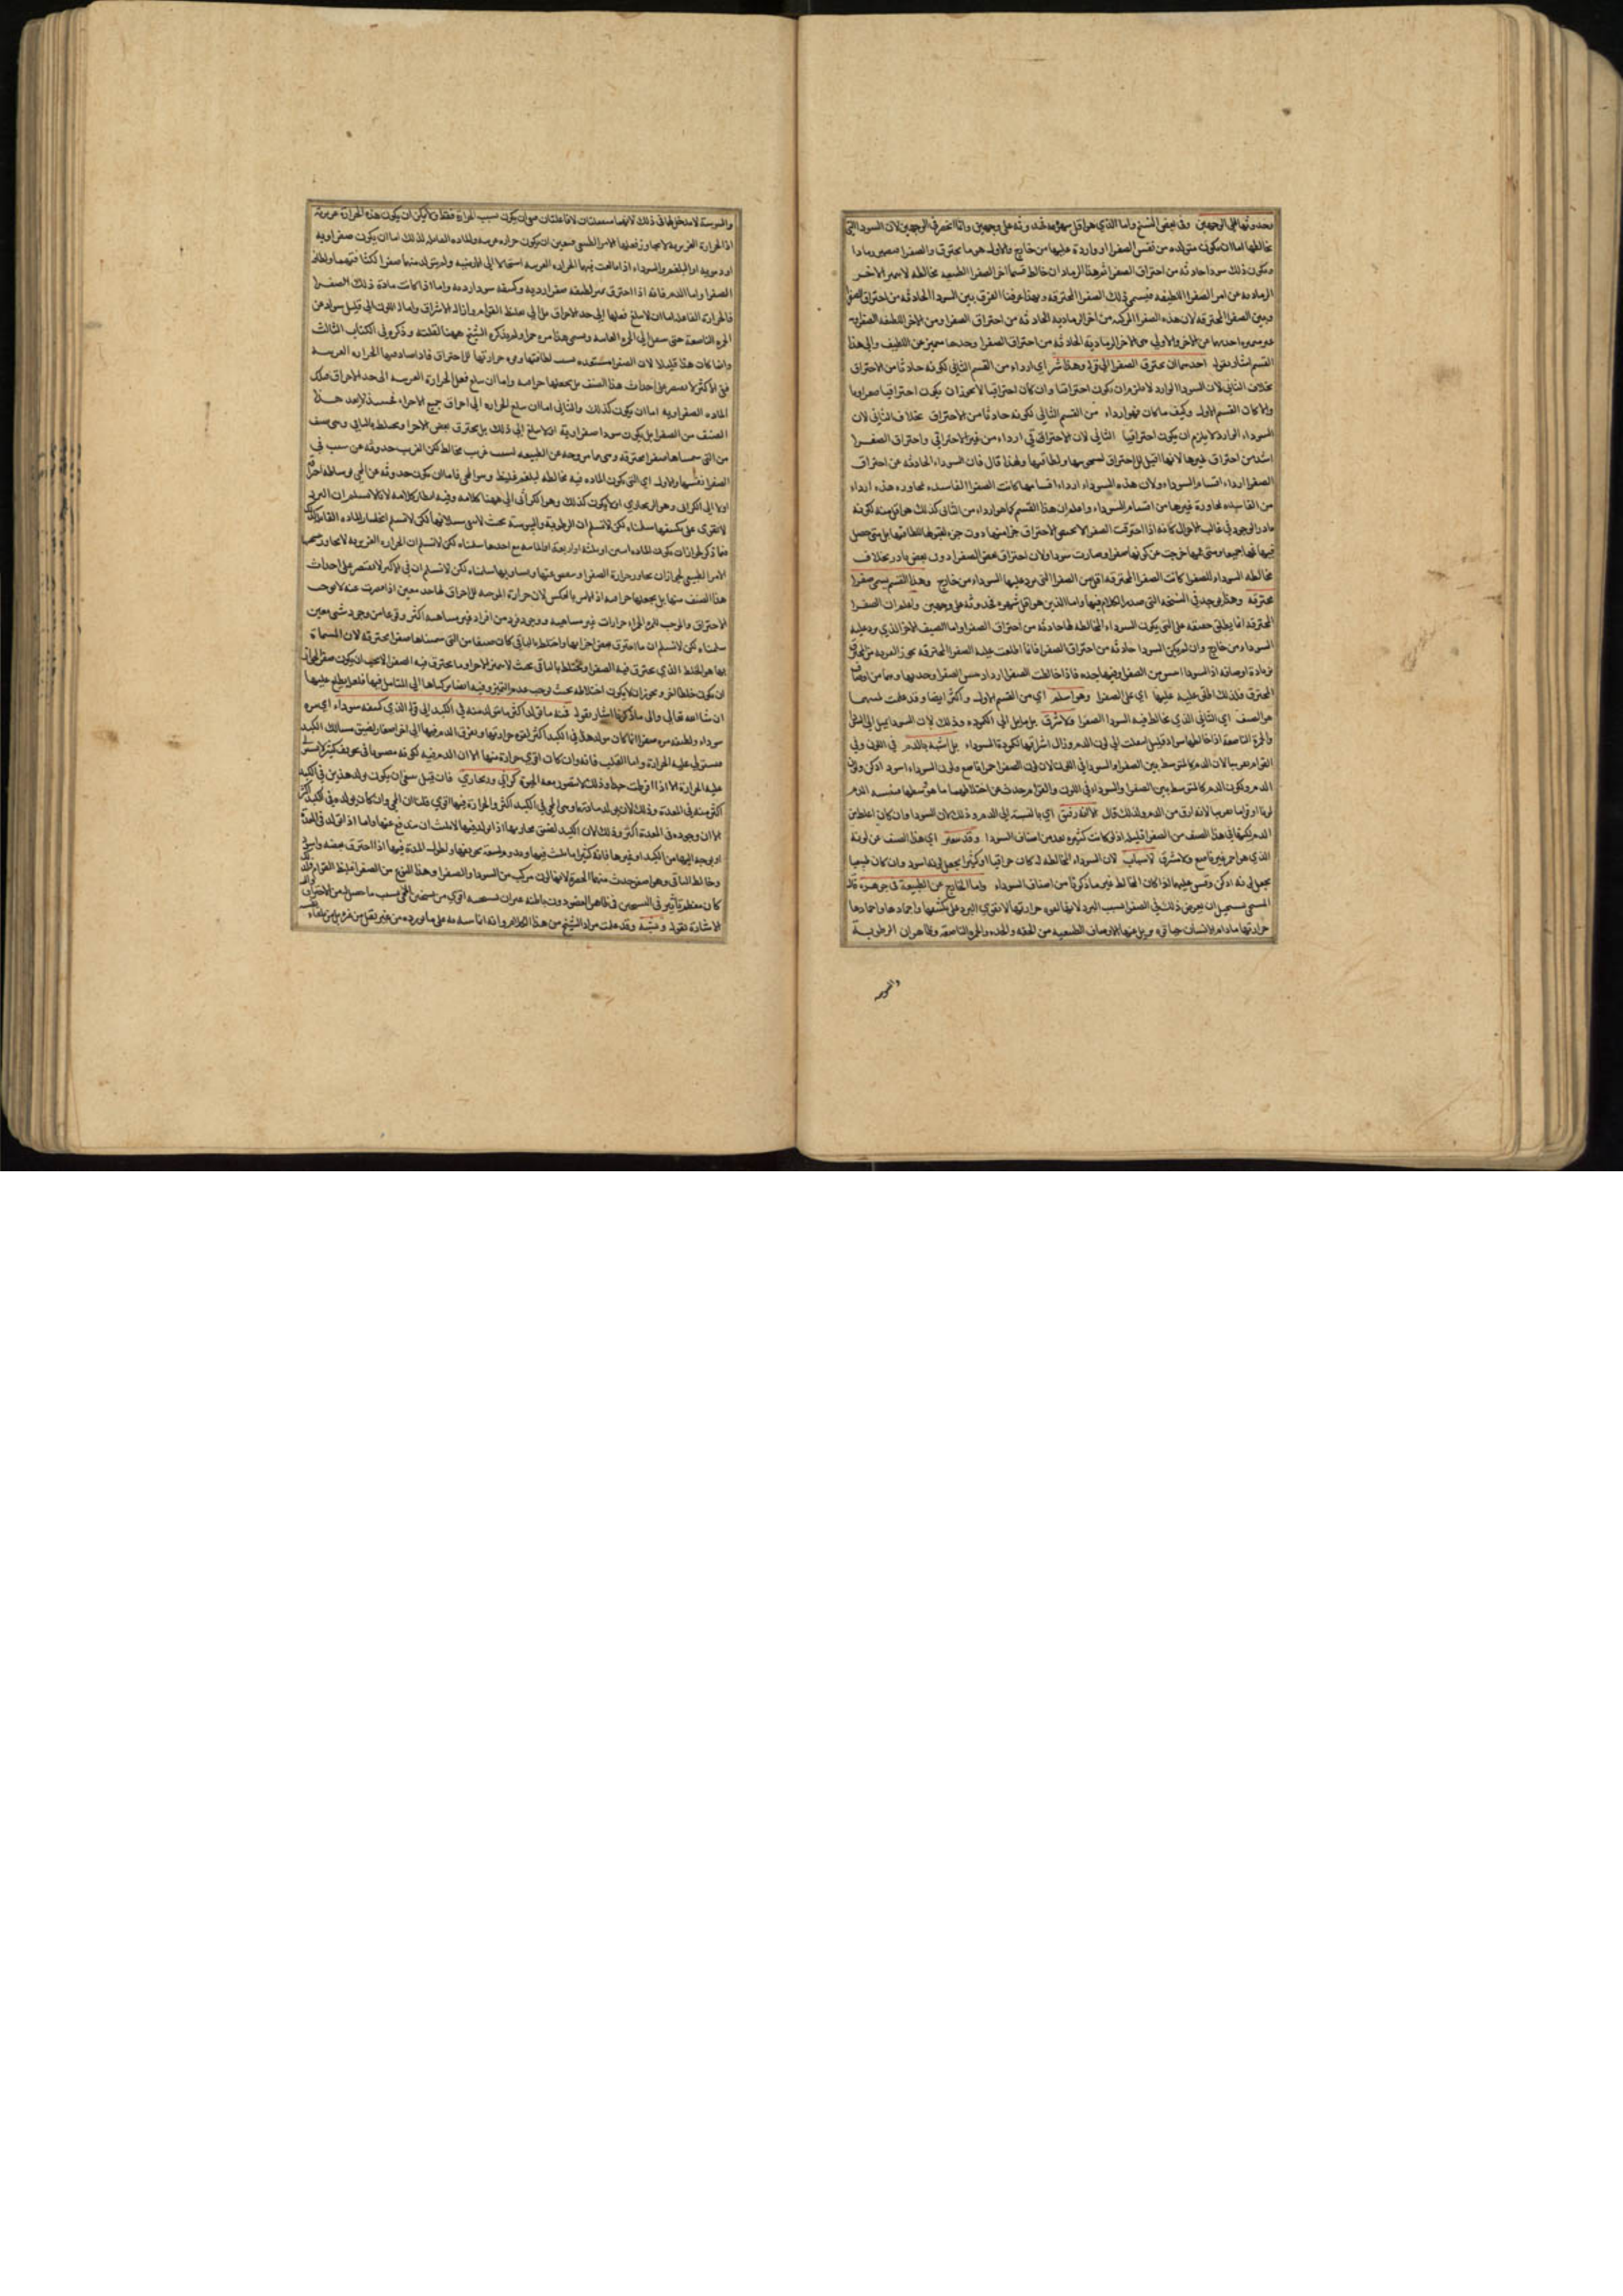 وحدوثها على الوجهين وفى بعض النسخ واما الذي هو اقل شهرة فحدوثه على وجهين وانما انحصر فى الوجهين لان السودا التى
تخالطها اما ان تكون متولده من نفس الصفرا او واردة عليها من خارج والاول هو ما يحترق والصفرا فتصير رمادا
وتكون ذلك سودا حادثه من احتراق الصفرا ثم هذا الرماد ان خالط قسما اخر الصفرا الطبيعيه مخالطه لا يتميز الاخر
الرماديه عن اخر الصفرا اللطيفه فيسمى ذلك الصفرا المحترقه وبهذا عرفنا الفرق بين السودا الحادثه من احتراق الصفرا
وبين الصفرا المحترقه لان هذه الصفرا المركبه من اخر الرماديه الحادثه من احتراق الصفرا ومن الاخر اللطيفه الصفراويه
احدهما عن الاخر والاولى هى الاخر الرماديه الحادثه من احتراق الصفرا وحدها متميز عن اللطيف والى هذا
القسم اشار بقوله احدهما ان تحترق الصفرا الى قوله وهذا شر اي ارداء من القسم الثانى لكونه حادثا من الاحتراق
بخلاف الثانى لان السودا الوارد لا يلزم ان يكون احتراقيا وان كان احتراقيا لا يجوز ان يكون احتراقيا صفراويا
والا كان القسم الاول وكيف ما كان فهو ارداء من القسم الثانى لكونه حادثا من الاحتراق بخلاف الثانى لان
السوداء الوارد لا يلزم ان يكون احتراقيا الثانى لان الاحتراقى ارداء من غير الاحتراقى واحتراق الصفرا
اشد من احتراق غيرها لانها اقبل للاحتراق ولطافتها ولهذا قال فان السوداء الحادثه عن احتراق
الصفرا ارداء اقسام السوداء ولان هذه السوداء ارداء اقسامها كانت الصفرا الفاسده بمجاوره هذه ارداء
من الفاسده بمجاورة غيرها من اقسام السوداء واعلم ان هذا القسم كما هو ارداء من الثانى كذلك هو اقل منه لكونه
نادر الوجود فى غالب الاحوال كانه اذا احترقت الصفرا لا يختص الاحتراق جزء منها دون جزء لقبولها للطافتها بل متى حصل
فيها عمها جميعا ومتى عمها خرجت عن كونها صفرا وصارت سودا ولان احتراق بعض الصفرا دون بعض نادر بخلاف
مخالطه السوداء للصفرا كانت الصفرا المحترقه اقل من الصفرا التى يرد عليها السوداء من خارج وهذا القسم يسمى صفرا
محترقه وهذا يوجد فى النسخه التى صدر الكلام فيها واما الذين هو اقل شهره فحدوثه على وجهين واعلم ان الصفرا
المحترقه انما يطلق حقيقه على التى يكون السوداء المخالطه لها حادثه من احتراق الصفرا واما الصنف الاخر الذي يرد عليه
السوداء من خارج وان لم يكن السودا حادثه من احتراق الصفرا فانما اطلقت عليه الصفرا المحترقه
المحترق فلذلك اطلق عليه عليها اي على الصفرا وهو اسلم اي من القسم الاول واكثر ايضا وقد علمت لميتهما
هو الصنف اي الثانى الذي يخالط فيه السودا الصفرا فلا شرق بل مايل الى الكمودة وذلك لان السودا
والحمرة الناصعة اذا خالطها سواد قليل انتقلت الى لون الدم وزال اشراقها لكمودة السوداء بل اشبه بالدم فى اللون وفى
القوام تقريبا لان الدم كالمتوسط بين الصفرا والسودا فى اللون لان لون الصفرا احمر ناصع ولون السوداء اسود ادكن ولون
الدم ويكون الدم كالمتوسط بين الصفرا والسوداء فى اللون والقوام يحدث من اختلاطهما ما هو متوسط
لونا وقواما تقريبا لانه ارق من الدم ولذلك قال الا انه رقيق اي بالنسبه الى الدم وذلك لان السودا وان كان اغلظ من
الدم لكنها فى هذا الصنف من الصفرا قليله اذ لو كانت كثيره بعد من اصناف السودا وقد يتغير اي هذا الصنف عن لونه
الذي هو احمر غير ناصع ولا مشرق لاسباب لان السوداء المخالطه له كان احتراقيا او كثيرا يجعل لونه اسود وان كان طبيعيا
يجعل لونه ادكن وقس عليه اذا كان المخالط غير ما ذكرنا من اصناف السوداء واما الخارج عن الطبيعة فى جوهره قال
المسيحى يستحيل ان يعرض ذلك فى الصفرا بسبب البرد لانها لقوه حرارتها لا يقوى البرد على تكثيفها واجمادها واخمادها
حرارتها ما دام الانسان حيا فى يزيل عنها الاوصاف الطبيعيه من الخفه والحده والحمره الناصعه وظاهر ان الرطوبة
واليبوسه
واليبوسة لا مدخل لها فى ذلك لانهما منفعلتان لا فاعلتان فبقى ان يكون بسبب الحرارة فقط ولا يمكن ان يكون هذه الحرارة غريزية
اذ الحرارة الغريزيه لا يتجاوز فعلها الامر الطبيعى فتعين ان يكون حراره غريبه والماده القابله لذلك اما ان يكون صفراويه
او دمويه او البلغم والسوداء اذا ما لعبت فيهما الحراره الغريبه استحالا الى الارضيه ولم يتولد منهما صفرا لكثافتهما ولطافة
الصفرا واما الدم فانه اذا احترق صار لطيفه صفرا ردية وكثيفه سودا رديه واما اذا كانت مادة ذلك الصفرا
فالحرارة الفاعله اما ان لا يبلغ فعلها الى حد الاحراق بل الى تغليظ القوام وازالة الاشراق وامالة اللون الى قليل سواد عن
الحمره الناصعة حتى ينتقل الى الحمره القانيه ويسمى هذا مره حمرا ولم يذكره الشيخ ههنا لقلته وذكره فى الكتاب الثالث
وانما كان هذا قليلا لان الصفرا مستعده بسبب لطافتها وقوه حرارتها للاحتراق فاذا صادمها الحراره الغريبه
ففى الاكثر لا يقتصر على احداث هذا الصنف بل يجعلها حراقه واما ان يبلغ فعل الحرارة الغريبه الى حد الاحراق فتلك
الماده الصفراويه اما ان يكون كذلك والثانى اما ان يبلغ الحراره الى احراق جميع الاجزاء فحينئذ لا يعد هذا
الصنف من الصفرا بل يكون سودا صفراوية او لا يبلغ الى ذلك بل يحترق بعض الاجزا ويختلط بالباقى وهى صنف
من التى سميناها صفرا محترقه وهى خارجه عن الطبيعه بسبب غريب مخالط لكن الغريب حدوثه عن سبب فى
الصفرا نفسها والاول اي التى يكون الماده فيه مخالطه لبلغم غليظ وهو المحى فاما ان يكون حدوثه عن المحى بوساطه احتراق
اولا الى الكراثى وهو الزنجاري او لا يكون كذلك وهو الكراثى الى ههنا كلامه وفيه انظار كلامه لانا لا نسلم ان البرد
لا يقوى على تكثيفها سلمناه لكن لا نسلم ان الرطوبة واليبوسة
الامر الطبيعى لجواز ان يجاوز حرارة الصفرا وينقص عنها ويساويها سلمناه لكن لا نسلم ان فى الاكثر لا يقتصر على احداث
هذا الصنف منها بل يجعلها حراقه اذ الامر بالعكس لان حرارة الموجبه للاحراق لها حد معين اذا قصرت عنه لا يوجب
الاحتراق والموجب للمره الحمراء حرارات غير متناهيه ووجود فرد من افراد غير متناهيه اكثر وقوعا من وجود شى معين
سلمناه لكن لا نسلم ان ما احترق بعض اجزايها واختلط بالباقى كان صنفا من التى سميناها صفرا محترقه لان المسماة
بها هو الخلط الذي يحترق فيه الصفرا ويختلط بالباقى بحيث لا يتميز الاجزا وما يحترق فيه الصفرا لا يجب ان يكون صفرا لجواز
ان يكون خلطا اخر ويجوز ان لا يكون اختلاطه بحيث يوجب عدم التميز وفيه انظار تركناها الى المتامل فيها فلعله يطلع عليها
ان شا الله تعالى والى ما ذكرنا اشار بقوله فمنه ما تولد اكثر ما يتولد منه فى الكبد الى قوله الذي كثيفه سوداء اي مره
سوداء ولطيفه مره صفرا انما كان تولد هذا فى الكبد اكثر لقوه حرارتها وتفرق الدم فيها الى اجزا صغار لضيق مسالك الكبد
مستولى عليه الحرارة واما القلب فانه وان كان اقوى حرارة منها الا ان الدم فيه لكونه مصبوبا فى تجويف كبير لا يستولى
عليه الحرارة الا اذا افرطت جدا وذلك لا يتصور معه الحيوة كراثى وزنجاري فان قيل ينبغى ان يكون تولد هذين فى الكبد
اكثر منه فى المعدة وذلك لان تولد مادتهما وهى المحى فى الكبد اكثر والحرارة فيها اقوى قلنا ان المحى وان كان تولده فى الكبد اكثر
الا ان وجوده فى المعدة اكثر وذلك لان الكبد لضيق مجاريها اذا تولد فيها لا يلبث ان يندفع عنها واما اذا تولد فى المعدة
او توجه اليها من الكبد او غيرها فانه كثيرا ما يلبث فيها ويدوم لسعة تجويفها ولطول المدة فيها اذا احترق بعضه واسود
وخالط الباقى وهو اصفر حدث منهما الخضرة لانها لون مركب من السواد والصفرا وهذا النوع من الصفرا غليظ القوام
كان يظهر تاثير فى التسخين فى ظاهر العضو دون باطنه غير ان تسخينه اقوى من تسخين المحى بسبب ما حصل له من الاحتراق
الاشارة بقوله ونبه وقد علمت مراد الشيخ من هذا الكلام